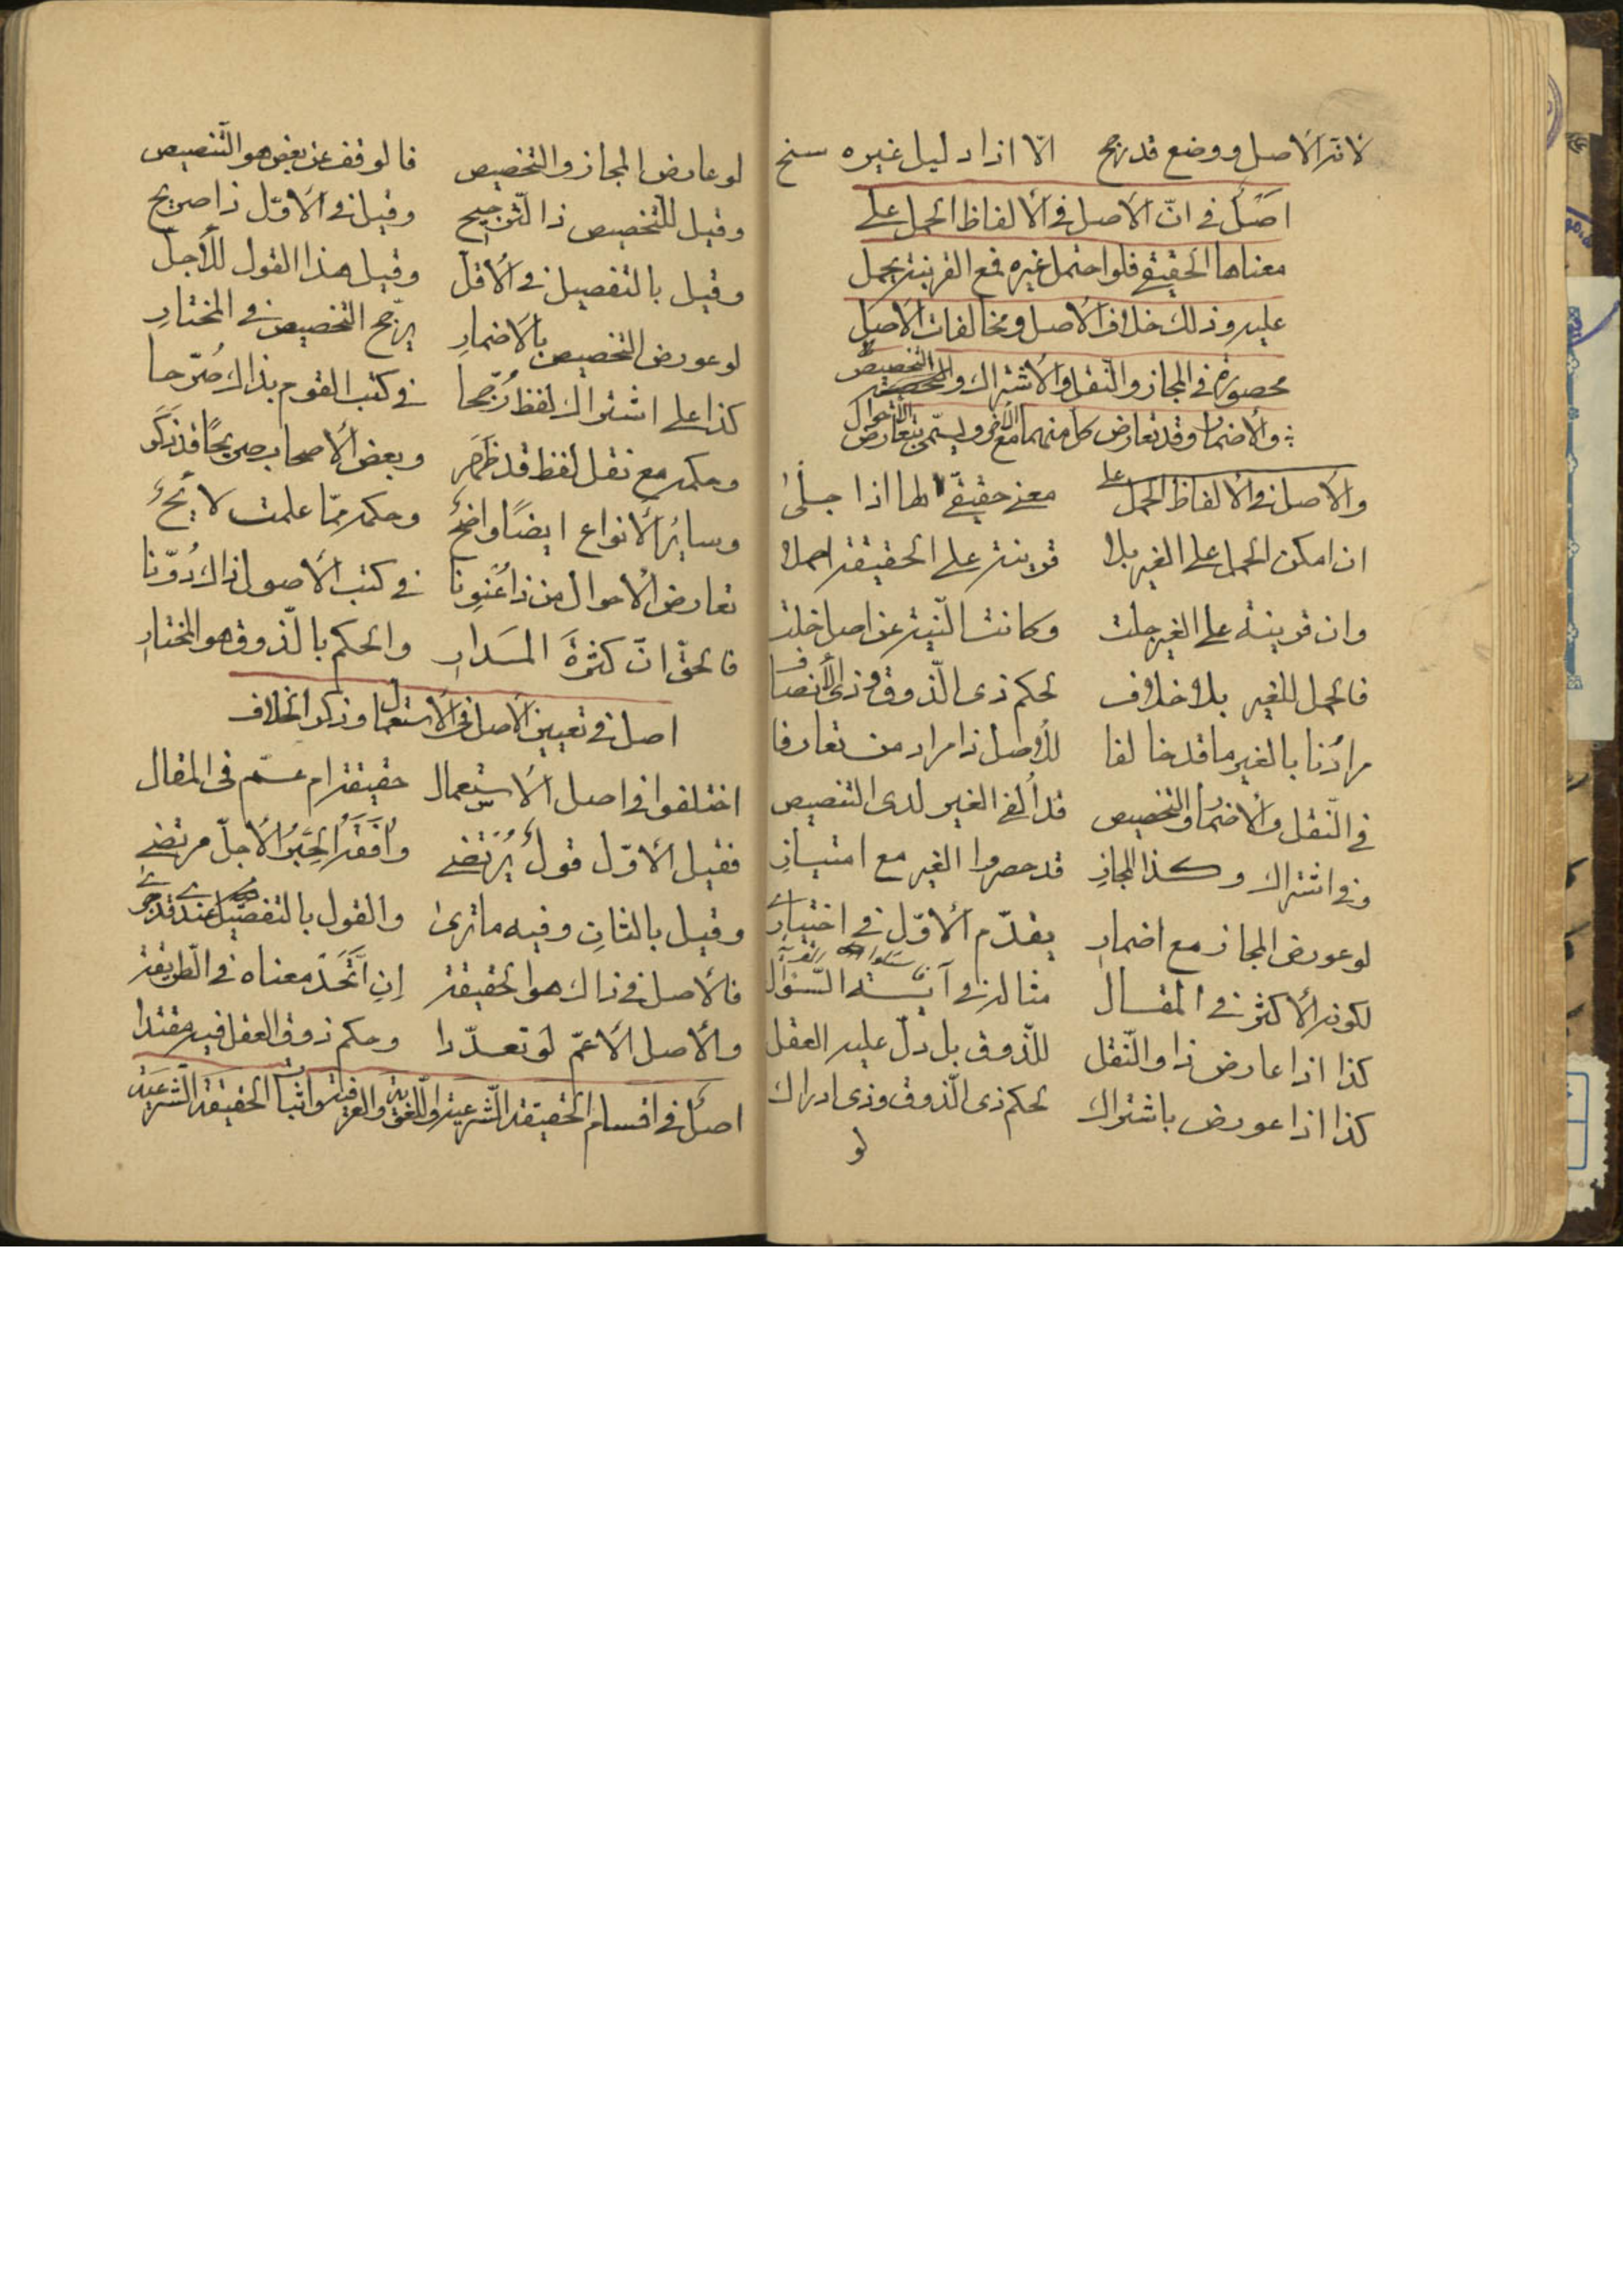 لانه الاصل ووضع قد رجح الّا اذا دليل غيره سنح
اصل في انّ الاصل في الالفاظ الحمل على
معناها الحقيقي فلو احتمل غيره فمع القرينة يحمل
عليه وذلك خلاف الاصل ومخالفات الاصل
محصورة في المجاز والنقل والاشتراك والتخصيص
والاضمار وقد تعارض كل منهما مع الاخر ويسمّى بتعارض الاحوال
والاصل في الالفاظ الحمل على معنى حقيقيّ لها اذا جلى
ان امكن الحمل على الغير بلا قرينة على الحقيقة احملا
وان قرينة على الغير جلت وكانت النّية عن اصل خلت
فالحمل للغير بلا خلاف لحكم ذى الذّوق وذى الأنصاف
مرادنا بالغير ما قد خالفا للأصل ذا مراد من تعارفا
في النّقل والاضمار والتخصيص قد ألفى الغير لدى التنصيص
وفي اشتراك وكذا المجازِ قد حصروا الغير مع امتيازِ
لو عورض المجاز مع اضمارِ يقدّم الاوّل في اختيارِ
لكونه الأكثر في المقال مثاله في آية السّؤال
كذا اذا عارض ذا والنّقل للذّوق بل دلّ عليه العقل
كذا اذا عورض باشتراك لحكم ذى الذّوق وذى ادراك
لو
لو عارض المجاز والتخصيص فالوقف عن بعض هو التّنصيص
وقيل للتّخصيص ذا التّرجيح وقيل في الاوّل ذا صريح
وقيل بالتفصيل في الأقلّ وقيل هذا القول للأجلّ
لو عورض التخصيص بالاضمارِ يرجّح التخصيص في المختارِ
كذا على اشتراك لفظ رُجّحا في كتب القوم بذاك صُرّحا
وحكمه مع نقل لفظ قد ظَهَر وبعض الأصحاب صريحًا قد ذَكَر
وساير الأنواع ايضًا واضحُ وحكمه ممّا علمت لائحُ
تعارض الاحوال من ذا عُنونا في كتب الأصول ذاك دُوّنا
فالحقّ انّ كثرةَ المَدارِ والحكم بالذّوق هو المختارِ
اصل في تعيين الاصل في الاستعمال وذكر الخلاف
اختلفوا في اصل الأستعمال حقيقة ام عمّ في المقال
فقيل الأوّل قولٌ يُرتَضى وافَقَه الحَبرُ الأجلّ مرتضى
وقيل بالثانِ وفيه ما ترى والقول بالتفصيل عندى قد جرى
فالأصل في ذاك هو الحقيقة إنِ اتَّحَدَ معناه في الطّريقة
والأصل الأعمّ لو تعدّدا وحكم ذوق العقل فيه مقتدا
اصل في اقسام الحقيقة الشّرعية واللّغوية والعرفية واثبات الحقيقة الشّرعيّة